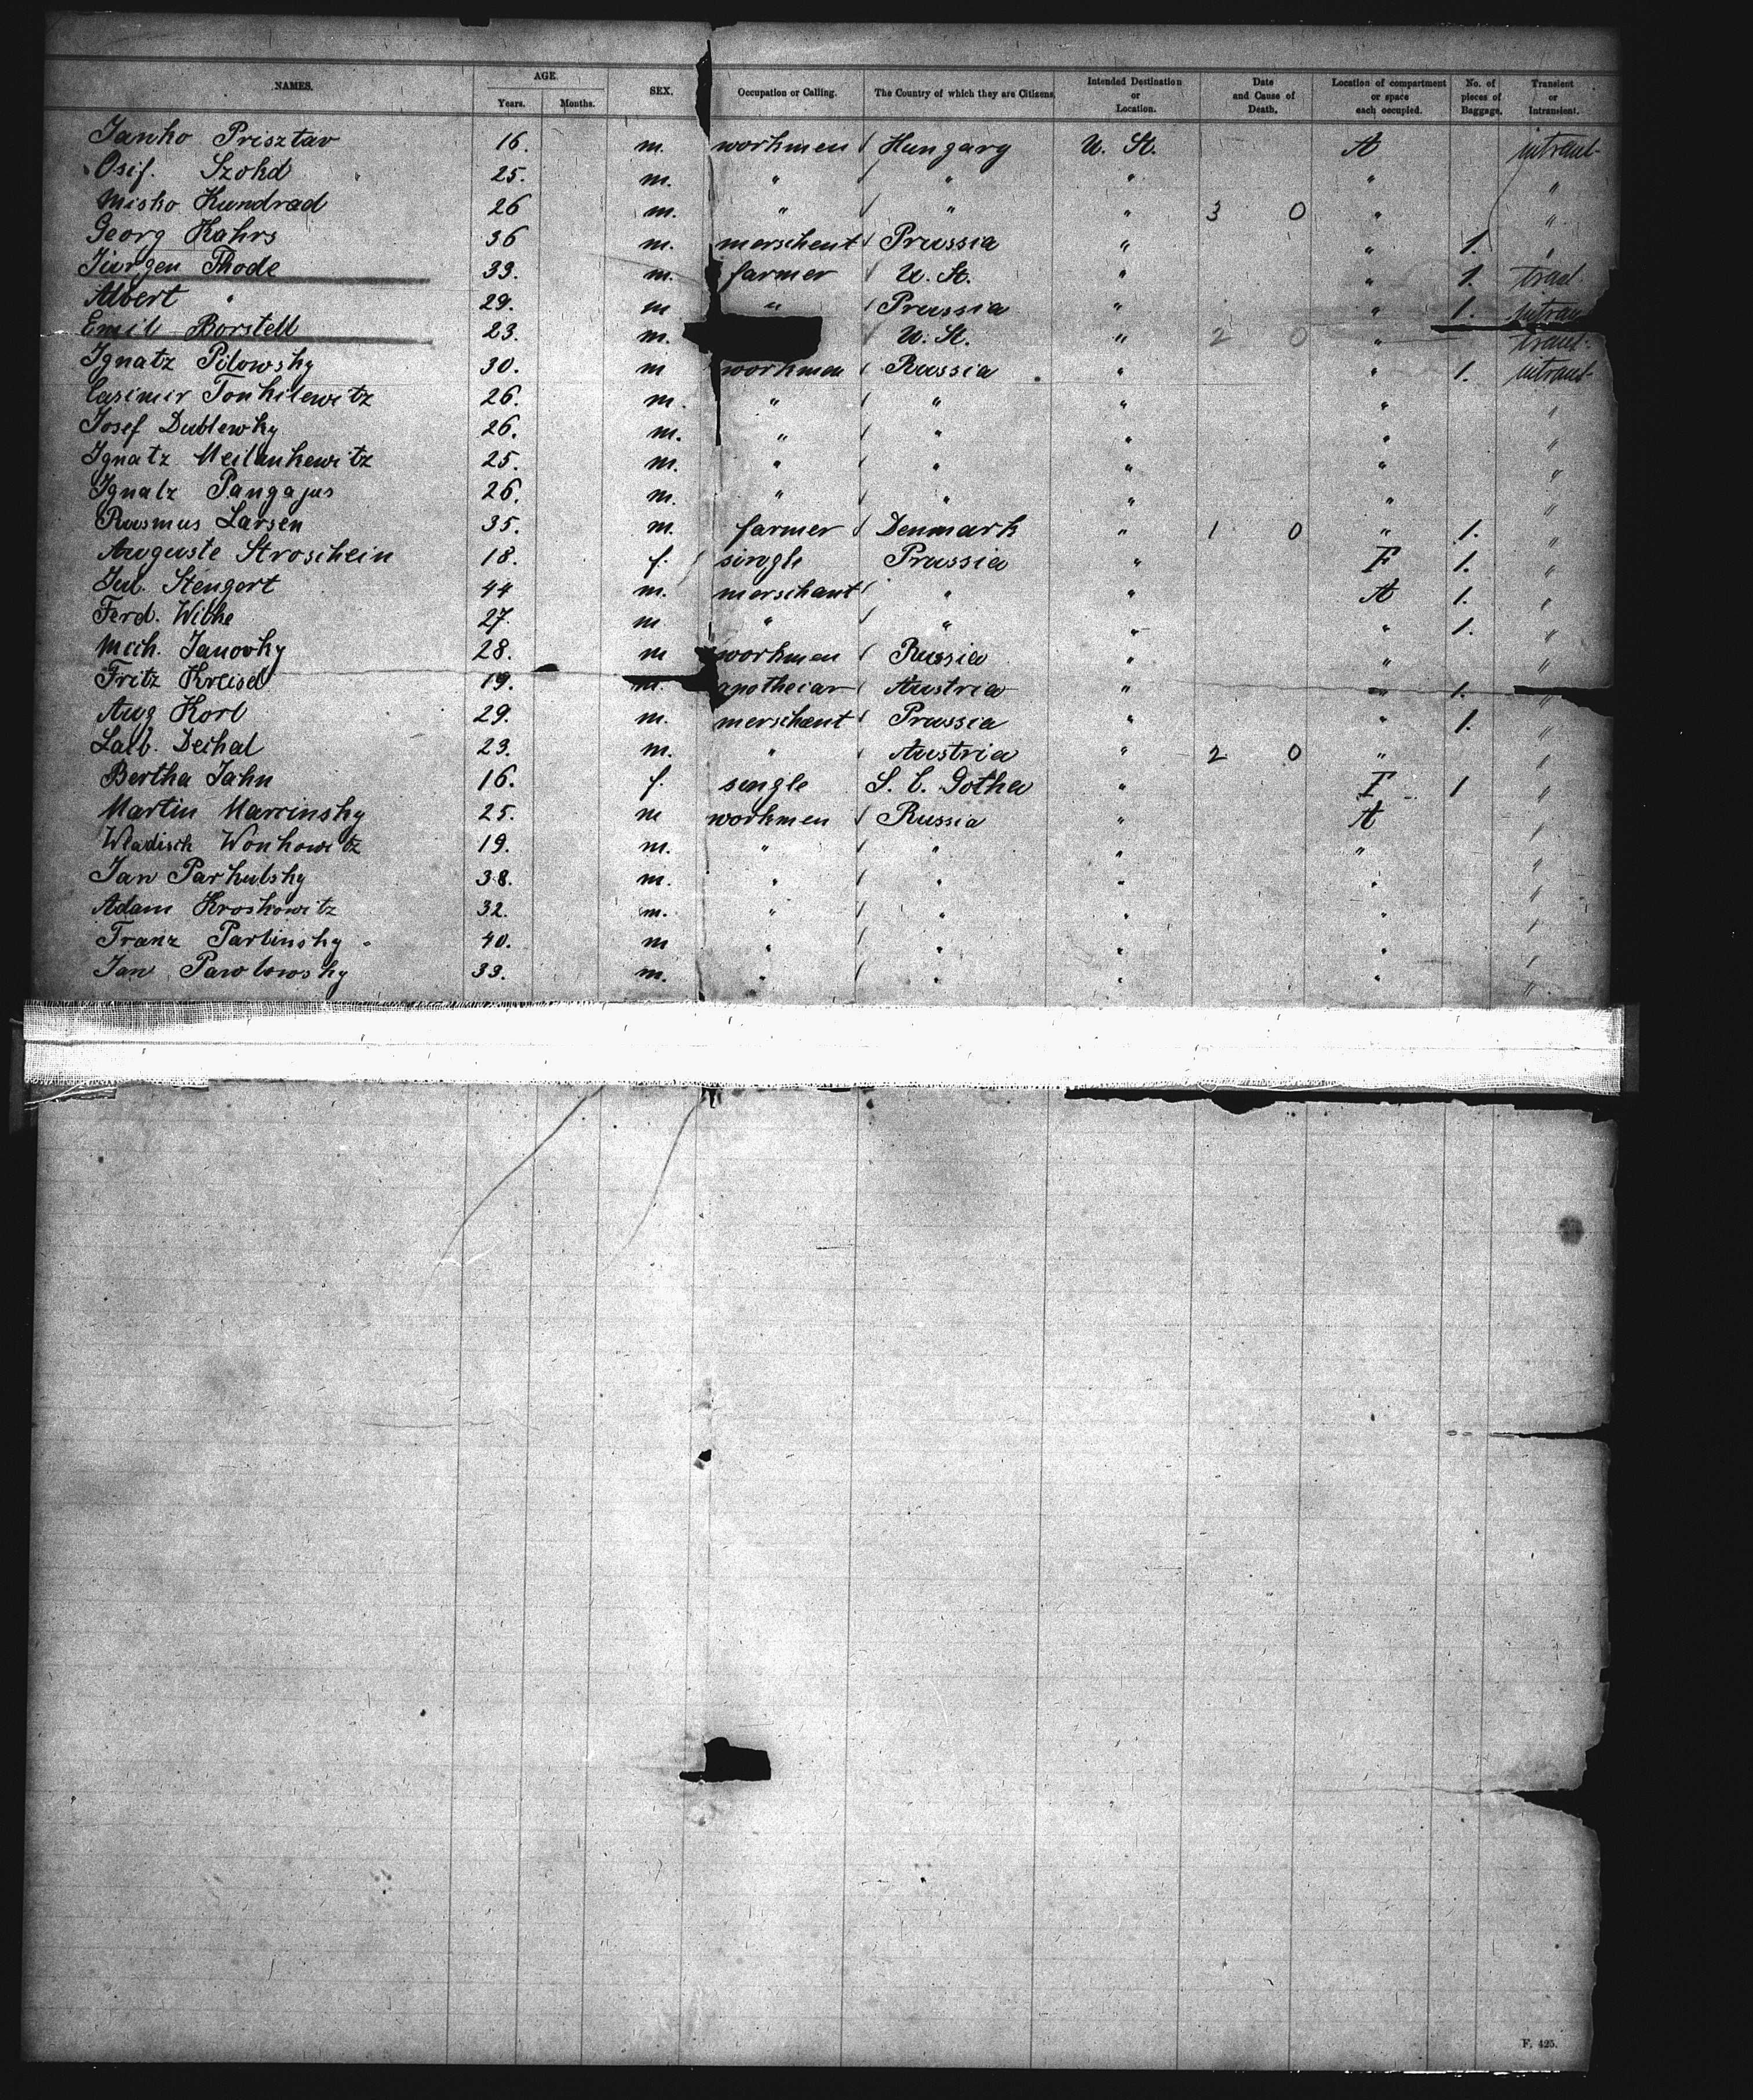 NAMES. AGE. Years. Months. SEX. Occupation or Calling. The Country of which they are Citizens. Intended Destination or Location. Date and Cause of Death. Location of compartment or space each occupied. No. of pieces of Baggage. Transient or Intransient.
Janko Prisztav 16. m. workmen Hungary U. St. A intrant-
Osif. Szokd 25. m. " " " " "
Misko Kundrad 26 m. " " " 3 0 " "
Georg Kahrs 36 m. merschent Prussia " " 1. "
Jürgen Thode 33. m. farmer U. St. " " 1. trant.
Albert " 29. m " Prussia " " 1. intran
Emil Borstell 23. m. U. St. " 2 0 " trant.
Ignatz Pilowsky 30. m workmen Russia " " 1. intrant-
Casimir Tonkilewitz 26. m. " " " " "
Josef Dublewky 26. m. " " " " "
Ignatz Meilunkewitz 25. m. " " " " "
Ignatz Pangajus 26. m. " " " " "
Rasmus Larsen 35. m. farmer Denmark " 1 0 " 1. "
Auguste Stroschein 18. f. single Prussia " F 1. "
Jul. Stengert 44 m. merschant " " A 1. "
Ferd. Withe 27. m. " " " " 1. "
Mich. Janovky 28. m workmen Russia " " "
Fritz Kreisel 19. m. apothecar Austria " " 1. "
Aug Korl 29. m. merschent Prussia " " 1. "
Dechal 23. m. " Austria " 2 0 " "
Bertha Jahn 16. f. single S. C. Gotha " F 1 "
Martin Marcinsky 25. m workmen Russia " A "
Wladisch Wonkowitz 19. m. " " " " "
Jan Parkulsky 38. m. " " " " "
Adam Kroskowitz 32. m. " " " " "
Franz Parlinsky 40. m " " " " "
Jan Pawlowsky 33. m. " " " " "
F. 425.